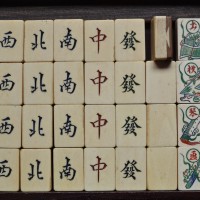 西 北 南 中 發
西 北 南 中 發
西 北 南 中 發
西 北 南 中 發